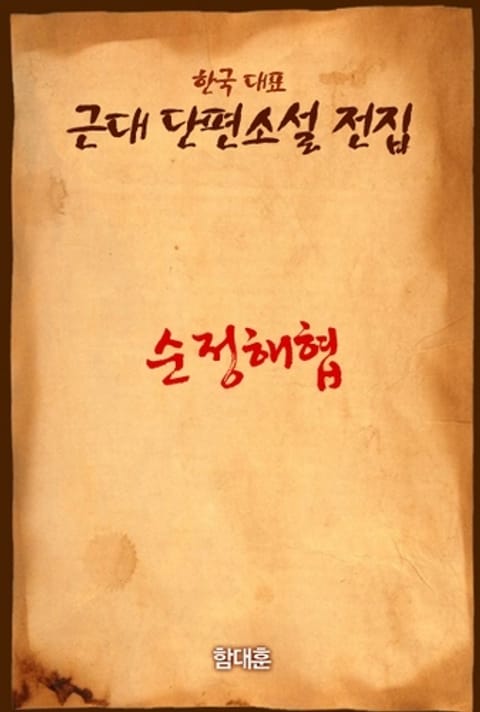 한국 대표
근대 단편소설 전집
순정해협
함대훈